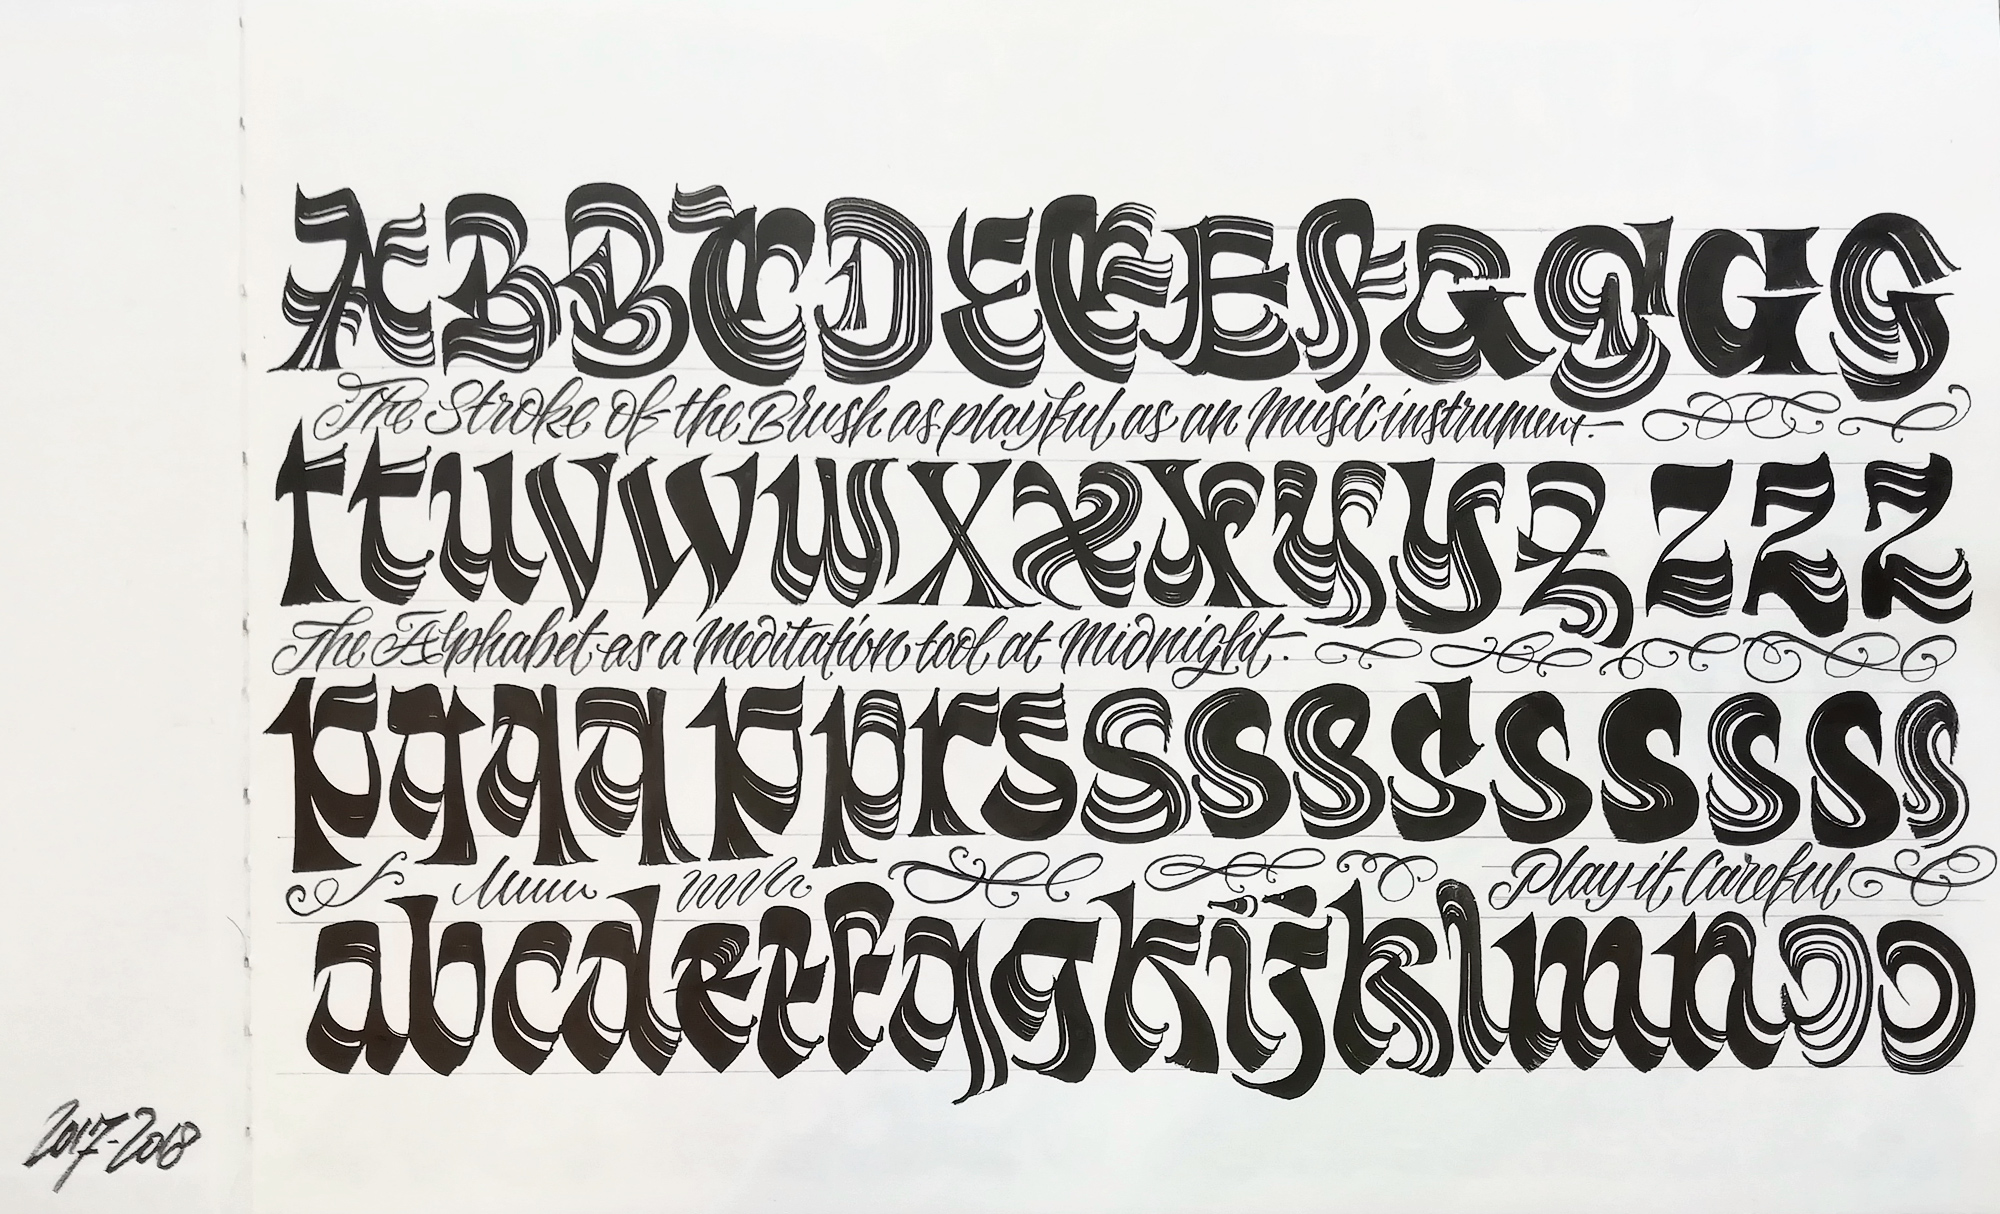 A B B C D E E E F G G G G
The Stroke of the Brush as playful as an Music instrument.
t t u v w u x x x y y z z z z
The Alphabet as a Meditation tool at Midnight.
p q q q p p r s s s s s s s s s s
Play it Careful
a b c d e e f g g k i j k l m n o o
2017-2018